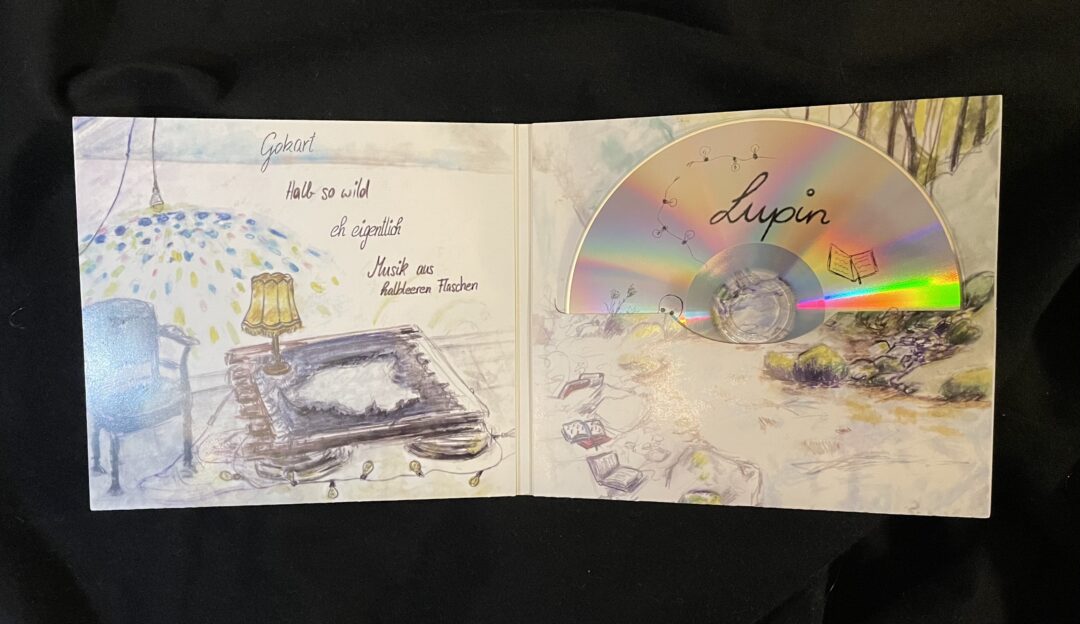 Gokart
Halb so wild
eh eigentlich
Musik aus
halbleeren Flaschen
Lupin